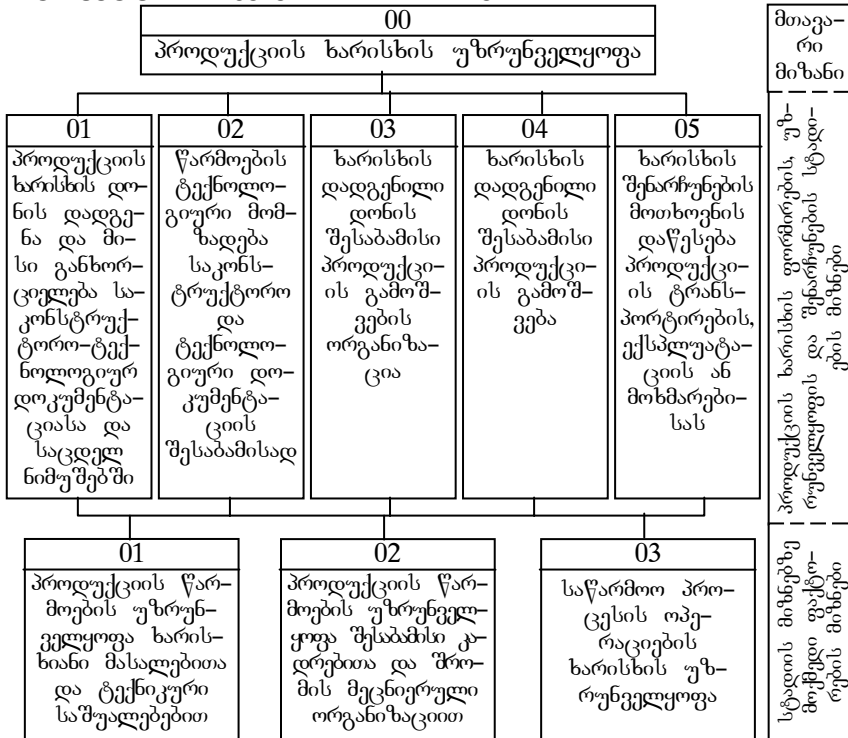 00
პროდუქციის ხარისხის უზრუნველყოფა
მთავა-
რი
მიზანი
01
პროდუქციის
ხარისხის დო-
ნის დადგე-
ნა და მი-
სი განხორ-
ციელება სა-
კონსტრუქ-
ტორო-ტექ-
ნოლოგიურ
დოკუმენტა-
ციასა და
საცდელ
ნიმუშებში
02
წარმოების
ტექნოლო-
გიური მომ-
ზადება
საკონს-
ტრუქტორო
და
ტექნოლო-
გიური დო-
კუმენტა-
ციის
შესაბამისად
03
ხარისხის
დადგენილი
დონის
შესაბამისი
პროდუქცი-
ის გამოშ-
ვების
ორგანიზა-
ცია
04
ხარისხის
დადგენილი
დონის
შესაბამისი
პროდუქცი-
ის გამოშ-
ვება
05
ხარისხის
შენარჩუნების
მოთხოვნის
დაწესება
პროდუქცი-
ის ტრანს-
პორტირების,
ექსპლუატა-
ციის ან
მოხმარები-
სას
პროდუქციის ხარისხის ფორმირების, უზ-
რუნველყოფის და შენარჩუნების სტადი-
ების მიზნები
01
პროდუქციის წარ-
მოების უზრუნ-
ველყოფა ხარის-
ხიანი მასალებითა
და ტექნიკური
საშუალებებით
02
პროდუქციის წარ-
მოების უზრუნველ-
ყოფა შესაბამისი კა-
დრებითა და შრო-
მის მეცნიერული
ორგანიზაციით
03
საწარმოო პრო-
ცესის ოპე-
რაციების
ხარისხის უზ-
რუნველყოფა
სტადიის მიზნებზე
მოქმედი ფაქტო-
რების მიზნები